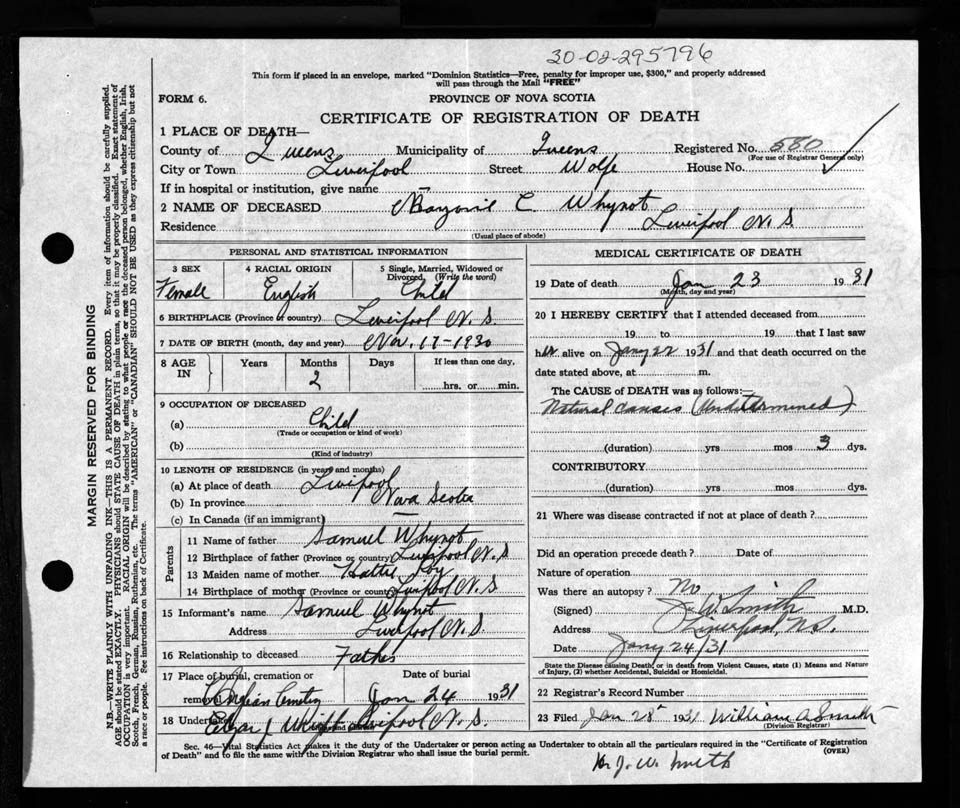 30-02-295796
This form if placed in an envelope, marked "Dominion Statistics—Free, penalty for improper use, $300," and properly addressed
will pass through the Mail "FREE"
FORM 6.
PROVINCE OF NOVA SCOTIA
CERTIFICATE OF REGISTRATION OF DEATH
1 PLACE OF DEATH—
County of Queens Municipality of Queens Registered No. 580
(For use of Registrar General only)
City or Town Liverpool Street Wolfe House No.
If in hospital or institution, give name —
2 NAME OF DECEASED C. Whynot
Residence Liverpool N. S.
(Usual place of abode)
PERSONAL AND STATISTICAL INFORMATION
3 SEX 4 RACIAL ORIGIN 5 Single, Married, Widowed or Divorced, (Write the word)
Female English Child
6 BIRTHPLACE (Province or country) Liverpool N. S.
7 DATE OF BIRTH (month, day and year) Nov. 17-1930
8 AGE IN Years Months Days If less than one day,
2 hrs. or min.
9 OCCUPATION OF DECEASED
(a) Child
(Trade or occupation or kind of work)
(b)
(Kind of industry)
10 LENGTH OF RESIDENCE (in years and months)
(a) At place of death Liverpool
(b) In province Nova Scotia
(c) In Canada (if an immigrant) —
Parents
11 Name of father Samuel Whynot
12 Birthplace of father (Province or country) Liverpool N. S.
13 Maiden name of mother Hattie
14 Birthplace of mother (Province or country) Liverpool N. S.
15 Informant's name Samuel Whynot
Address Liverpool N. S.
16 Relationship to deceased Father
17 Place of burial, cremation or Date of burial
removal Cemetery Jan 24 1931
18 Undertaker Edgar J. Wright Liverpool N. S.
MEDICAL CERTIFICATE OF DEATH
19 Date of death Jan 23 1931
(Month, day and year)
20 I HEREBY CERTIFY that I attended deceased from
19 to 19 that I last saw
her alive on Jany 22 1931 and that death occurred on the
date stated above, at m.
The CAUSE OF DEATH was as follows:—
Natural causes (Undetermined)
(duration) yrs mos 3 dys.
CONTRIBUTORY
(duration) yrs. mos. dys.
21 Where was disease contracted if not at place of death?
Did an operation precede death? Date of
Nature of operation
Was there an autopsy? No
(Signed) J. W. Smith M.D.
Address Liverpool, N.S.
Date Jany 24/31
State the Disease causing Death, or in death from Violent Causes, state (1) Means and Nature
of Injury, (2) whether Accidental, Suicidal or Homicidal.
22 Registrar's Record Number
23 Filed Jan 28 1931 William A Smith
(Division Registrar)
Sec. 46—Vital Statistics Act makes it the duty of the Undertaker or person acting as Undertaker to obtain all the particulars required in the "Certificate of Registration
of Death" and to file the same with the Division Registrar who shall issue the burial permit.
(OVER)
J. W. Smith
MARGIN RESERVED FOR BINDING
N.B.—WRITE PLAINLY WITH UNFADING INK—THIS IS A PERMANENT RECORD. Every item of information should be carefully supplied.
AGE should be stated EXACTLY. PHYSICIANS should STATE CAUSE OF DEATH in plain terms, so that it may be properly classified. Exact statement of
OCCUPATION is very important. RACIAL ORIGIN will be described by stating to what people or race the deceased person belonged, whether English, Irish,
Scotch, French, German, Russian, Ruthenian, etc. The terms "AMERICAN" or "CANADIAN" SHOULD NOT BE USED as they express citizenship but not
a race or people. See instructions on back of Certificate.